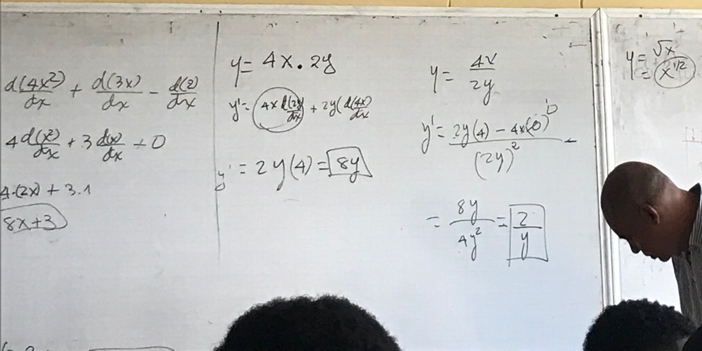 d(4x²)/dx + d(3x)/dx - d(2)/dx
4 d(x²)/dx + 3 d(x)/dx + 0
4·(2x) + 3.1
8x+3
y = 4x · 2y
y' = 4x d(2y)/dx + 2y(d(4x)/dx
y' = 2y(4) = 8y
y = 4x/2y
y' = 2y(4) - 4x(0)/(2y)²
= 8y/4y² = 2/y
y = √x
= x^1/2